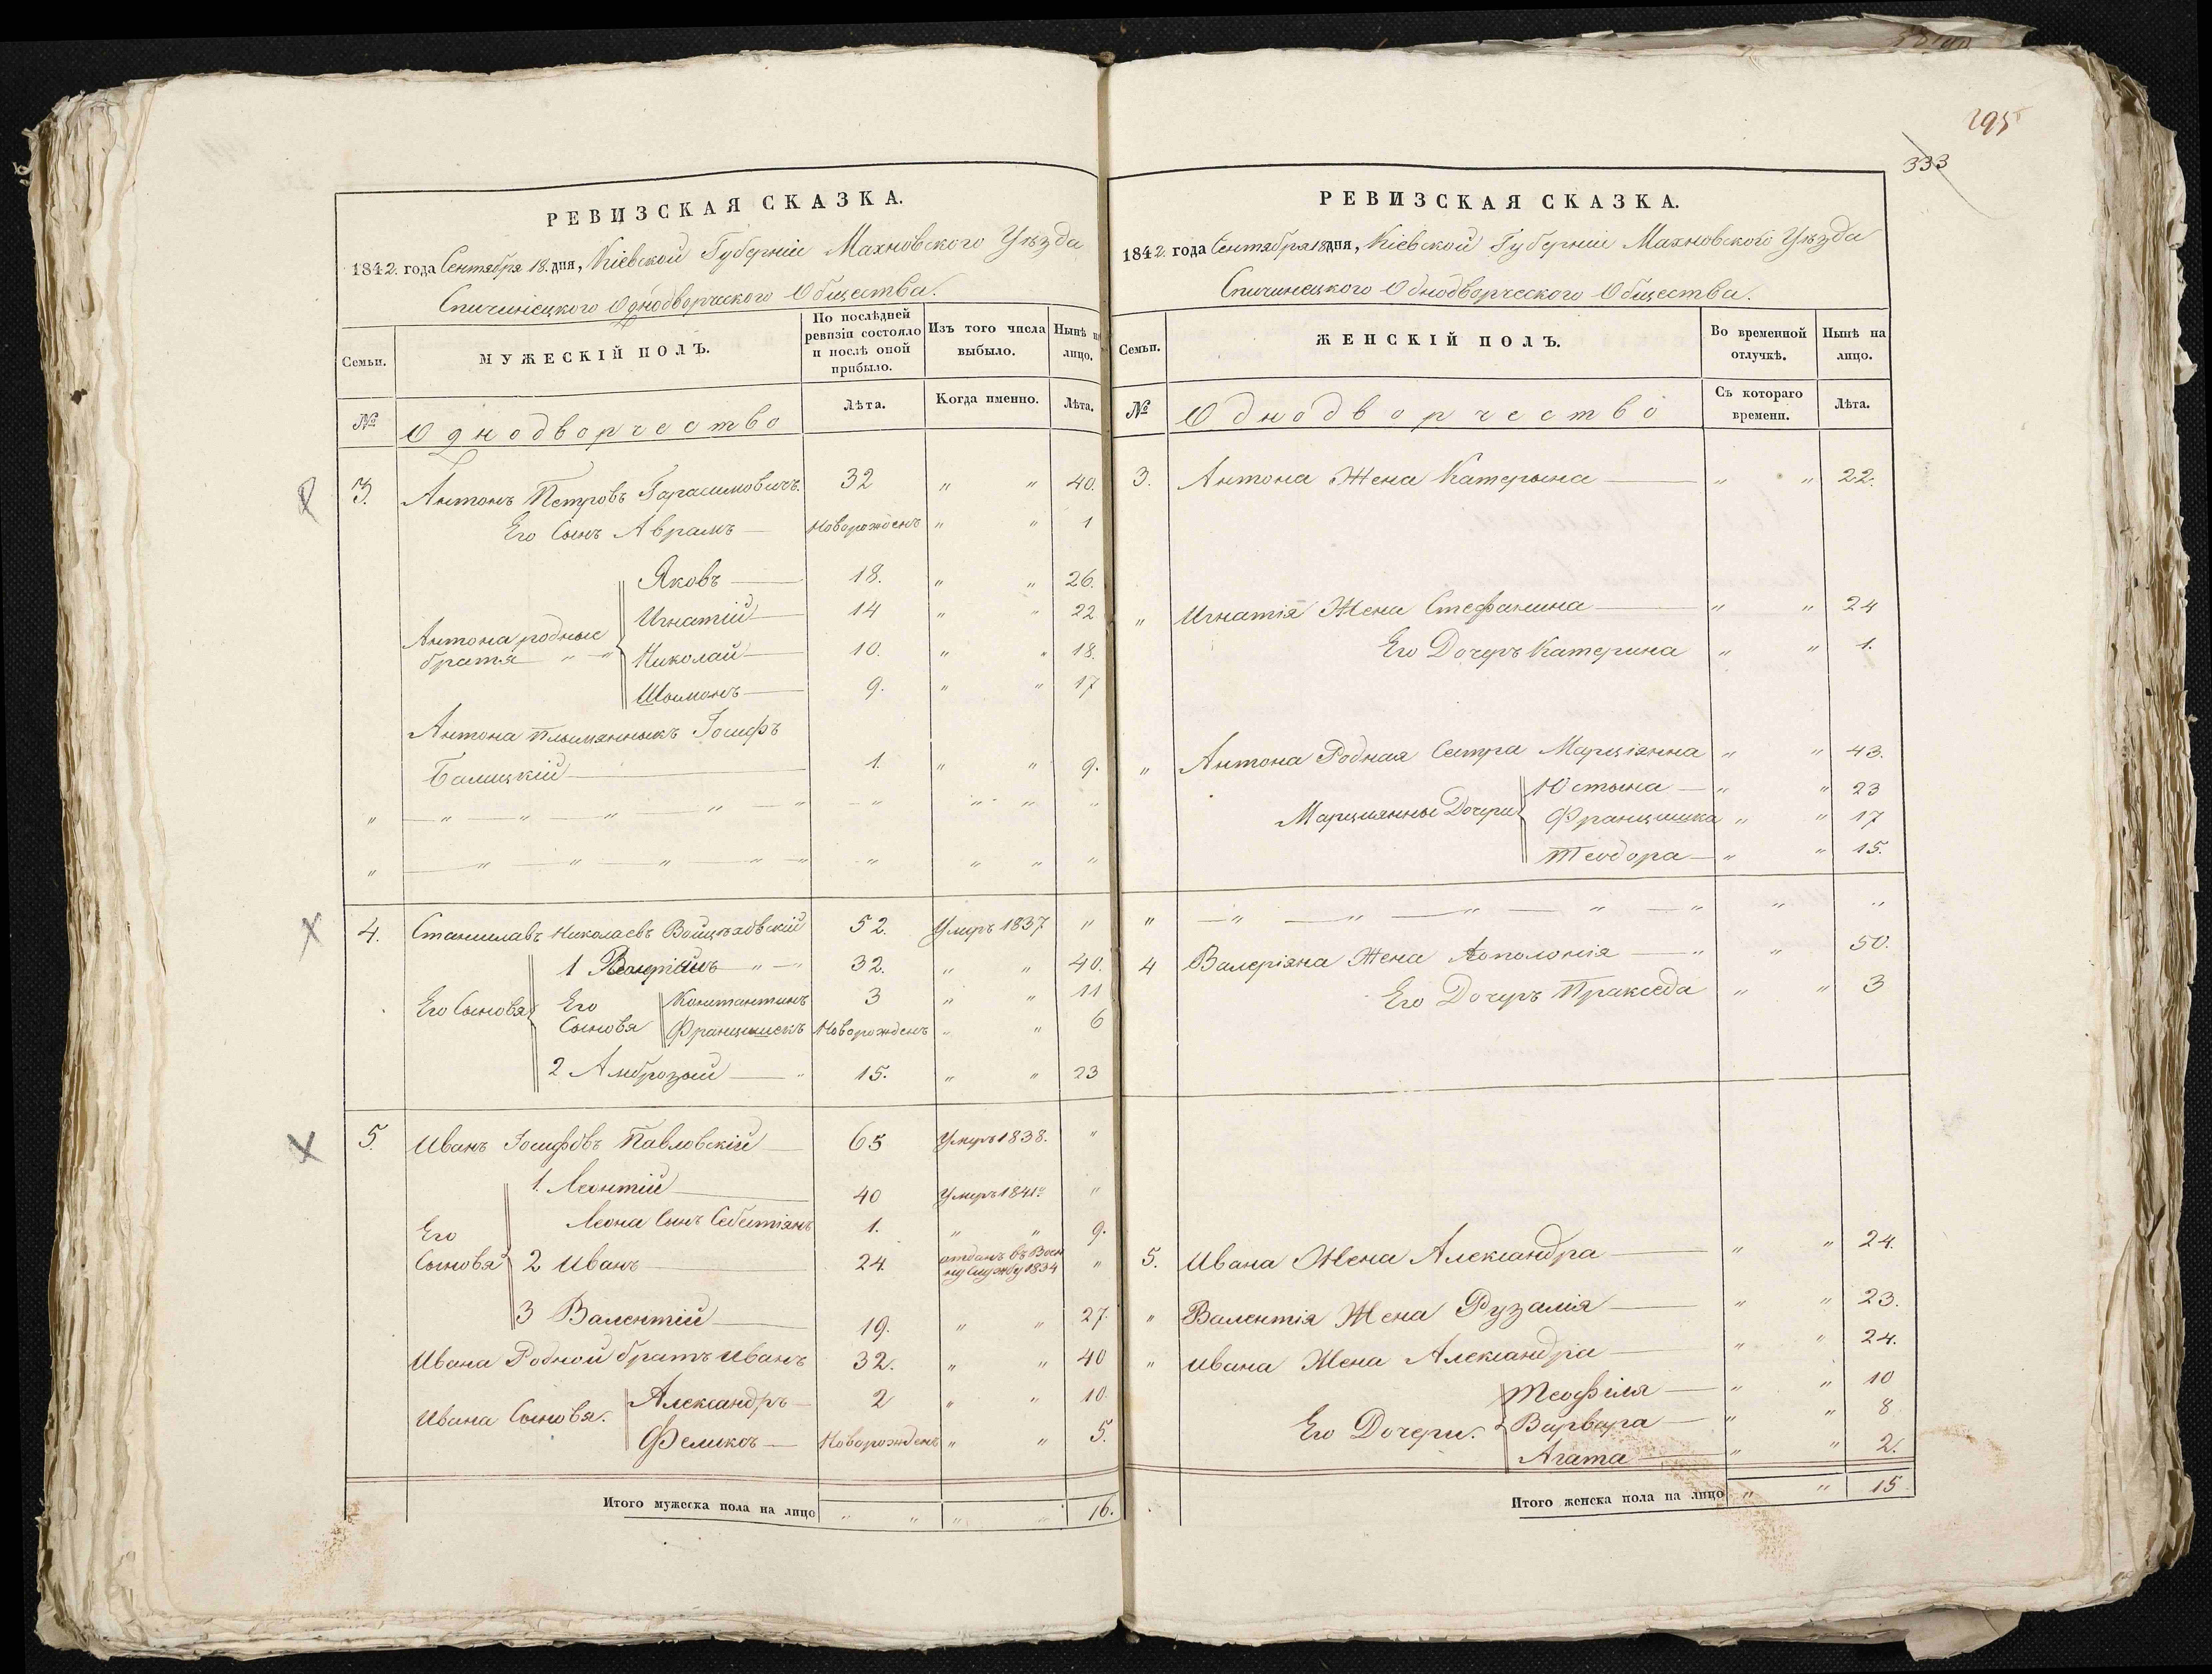 РЕВИЗСКАЯ СКАЗКА.
1842. года Сентября 18. дня, Кіевской Губерніи Махновского Уѣзда
Спичинецкого Однодворческого Общества.
Семьи.
МУЖЕСКІЙ ПОЛЪ.
По послѣдней ревизіи состояло и послѣ оной прибыло.
Изъ того числа выбыло.
Нынѣ на лицо.
№
Однодворчество
Лѣта.
Когда именно.
Лѣта.
3. Антонъ Петровъ Гарасимовичъ. 32 " " 40.
Его Сынъ Аврамъ — Новорожденъ " " 1
Яковъ — 18. " " 26.
Игнатій — 14 " " 22
Антона родные братя " "
Николай — 10. " " 18.
Шымонъ — 9. " " 17
Антона Плымянныкъ Іосифъ
Балицкій — 1. " " 9.
4. Станиславъ Николаевъ Войцѣховскій 52. Умръ 1837 "
1 32. " " 40.
Его Сыновя
Его Сыновя
Константинъ 3 " " 11
Францышекъ Новорожденъ " " 6
2 Амброзый — 15. " " 23
5. Иванъ Іосифовъ Павловскій — 65 Умръ 1838. "
1. Леонтій — 40 Умръ 1841г "
Леона Сынъ Себестіянъ 1. " " 9.
Его Сыновя
2 Иванъ — 24. отданъ въ Воен ну Службу 1834 "
3 Валентій — 19. " " 27.
Ивана Родной братъ Иванъ 32. " " 40
Ивана Сыновя.
Александръ — 2 " " 10
Феликсъ — Новорожденъ " " 5.
Итого мужеска пола на лицо " " " " 16.
295
333
РЕВИЗСКАЯ СКАЗКА.
1842. года Сентября 18 дня, Кіевской Губерніи Махновского Уѣзда
Спичинецкого Однодворческого Общества.
Семьи.
ЖЕНСКІЙ ПОЛЪ.
Во временной отлучкѣ.
Нынѣ на лицо.
№
Однодворчество
Съ котораго времени.
Лѣта.
3. Антона Жена Катерына — " " 22.
" Игнатія Жена Стефанина — " " 24
Его Дочеръ Катерина " " 1.
" Антона Родная Сестра Марціянна " " 43.
Марциянны Дочери
Юстына — " " 23
Францишка " " 17
Теодора — " " 15.
4 Валеріяна Жена Апполонія — " " 50.
Его Дочеръ Практеда " " 3
5. Ивана Жена Александра — " " 24.
" Валентія Жена Рузалія — " " 23.
" Ивана Жена Александра — " " 24.
Его Дочери.
Теофіля — " " 10
Варвара — " " 8
Агата — " " 2.
Итого женска пола на лицо " " 15